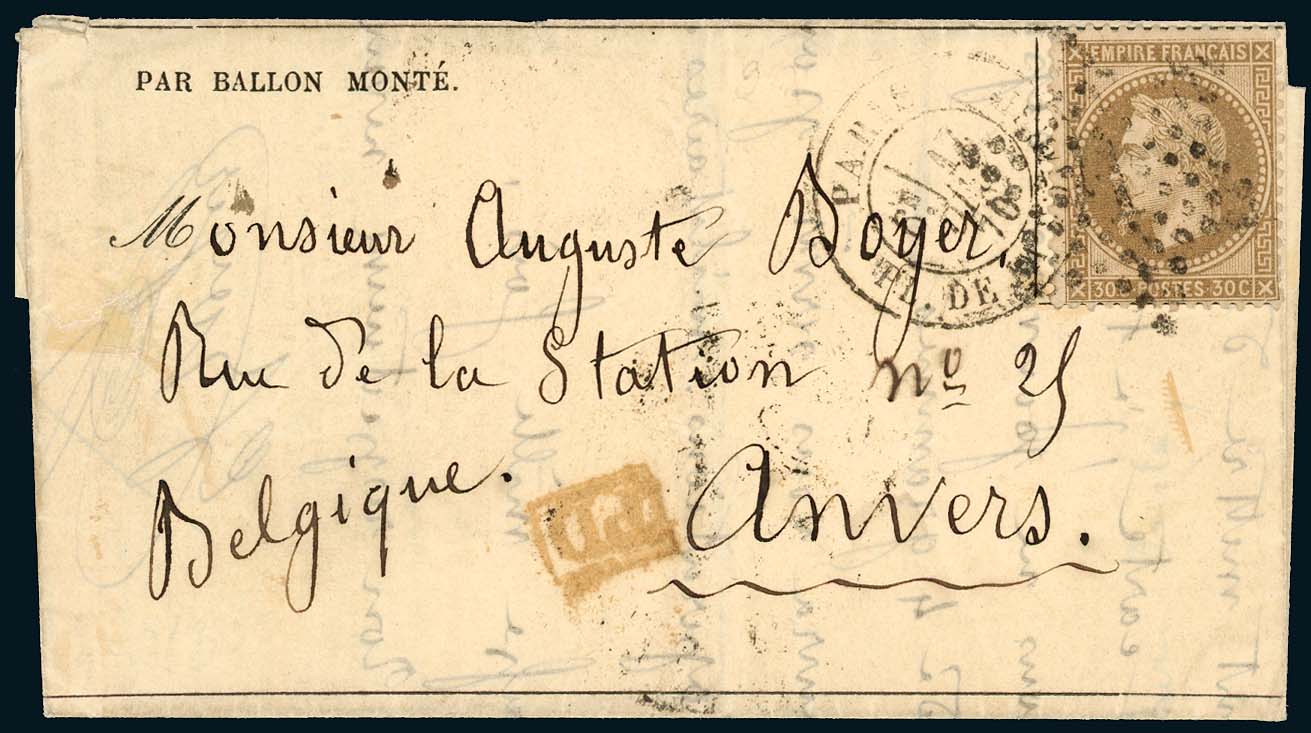 PAR BALLON MONTÉ.
EMPIRE FRANÇAIS
30C POSTES 30C
PARIS
70
PL. DE
Monsieur Auguste Boyer,
Rue de la Station nº 25
Belgique.
Anvers.